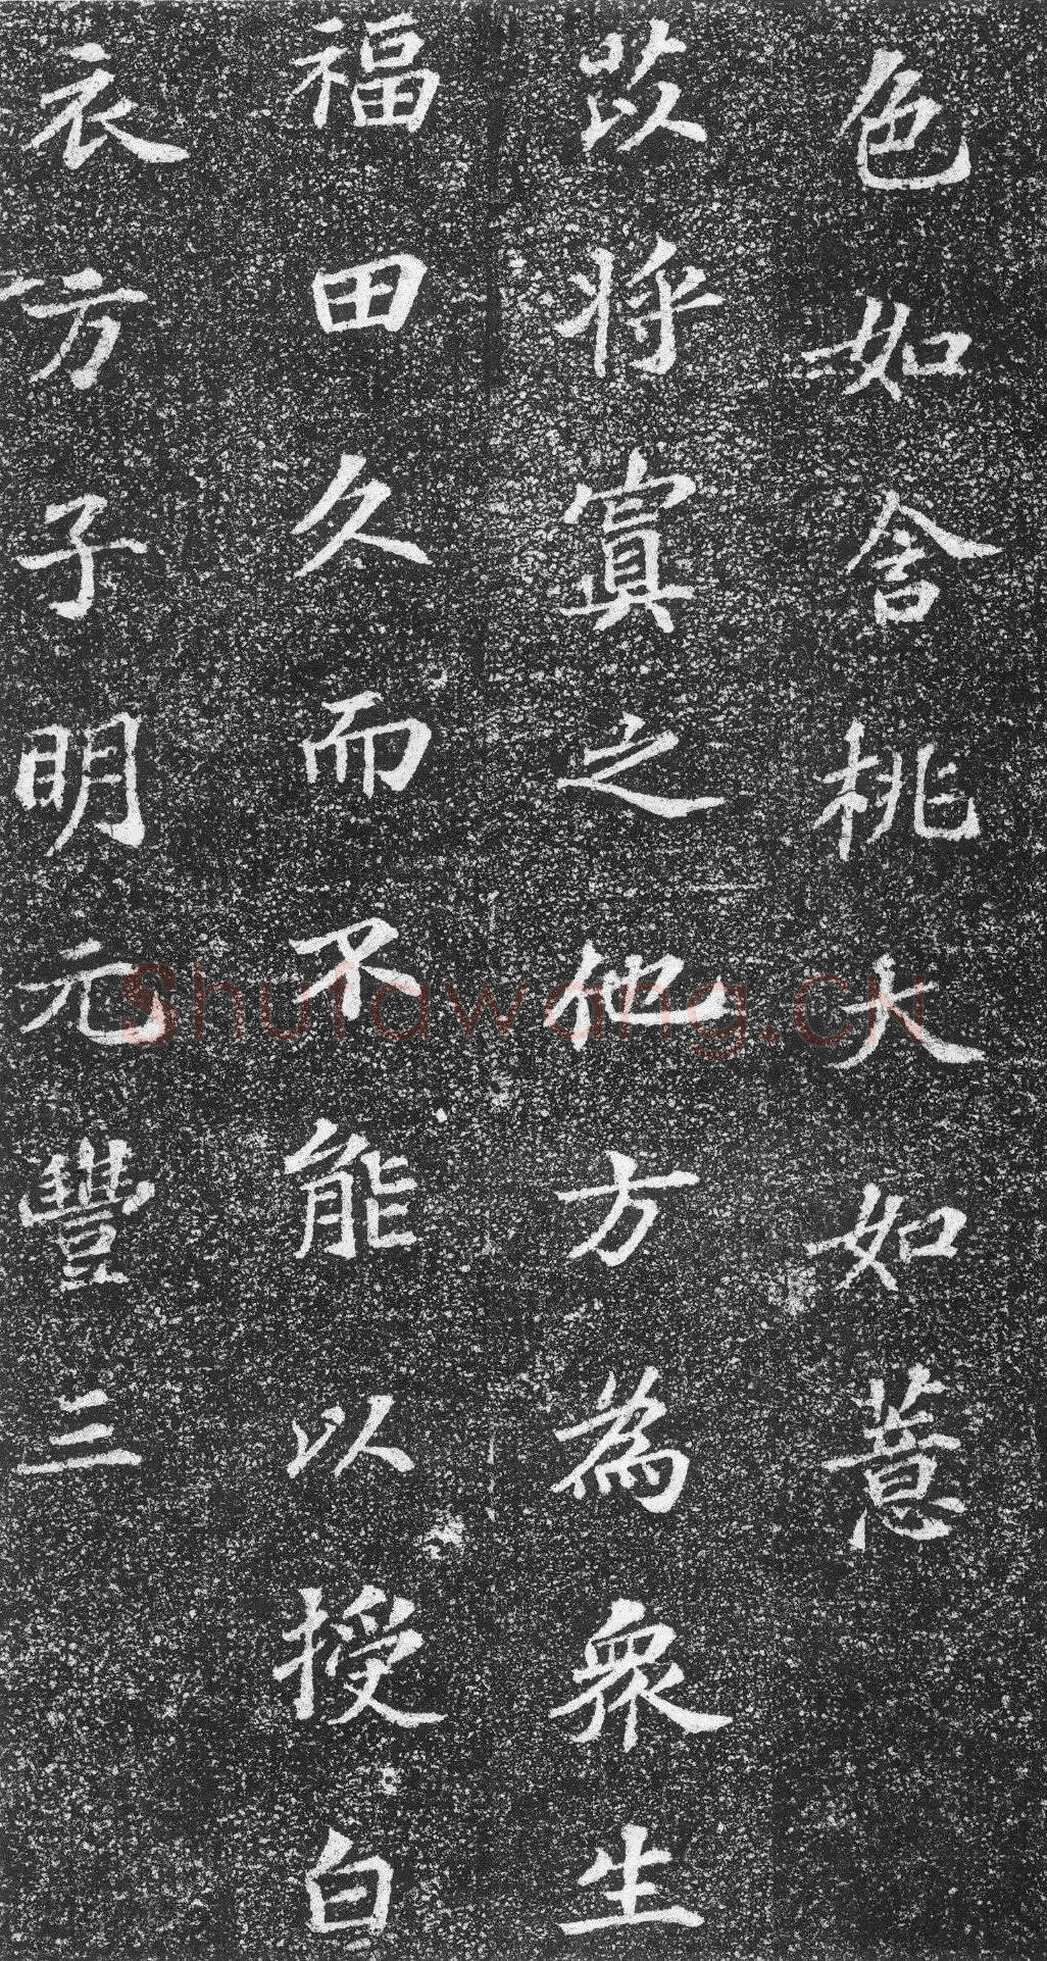 色如含桃大如薏
苡將寘之他方為衆生
福田久而不能以授白
衣方子明元豐三
Shufawang.CN